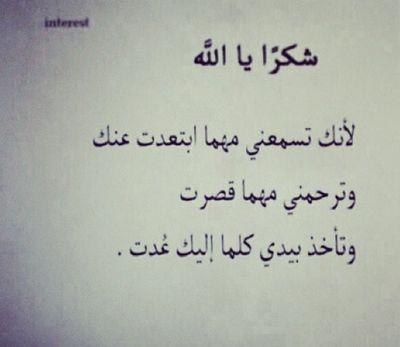 interest
شكرًا يا الله
لأنك تسمعني مهما ابتعدت عنك
وترحمني مهما قصرت
وتأخذ بيدي كلما إليك عُدت .